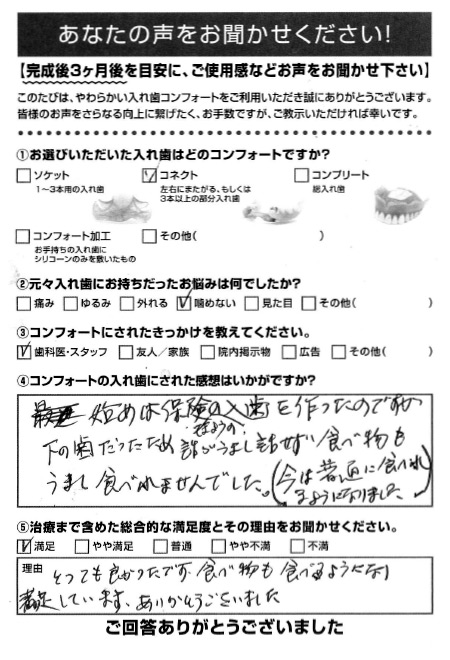 あなたの声をお聞かせください!
【完成後3ヶ月後を目安に、ご使用感などお声をお聞かせ下さい】
このたびは、やわらかい入れ歯コンフォートをご利用いただき誠にありがとうございます。
皆様のお声をさらなる向上に繋げたく、お手数ですが、ご教示いただければ幸いです。
①お選びいただいた入れ歯はどのコンフォートですか?
ソケット
1〜3本用の入れ歯
コネクト
左右にまたがる、もしくは
3本以上の部分入れ歯
コンプリート
総入れ歯
コンフォート加工
お手持ちの入れ歯に
シリコーンのみを敷いたもの
その他( )
②元々入れ歯にお持ちだったお悩みは何でしたか?
痛み ゆるみ 外れる 噛めない 見た目 その他( )
③コンフォートにされたきっかけを教えてください。
歯科医・スタッフ 友人/家族 院内掲示物 広告 その他( )
④コンフォートの入れ歯にされた感想はいかがですか?
始めは保険の入歯を作ったのですが
下の歯だったため 話がうまし話せずい食べ物も
うまし食べれませんでした。(今は普通に食べれ
るようになりました)
⑤治療まで含めた総合的な満足度とその理由をお聞かせください。
満足 やや満足 普通 やや不満 不満
理由 とっても良かったです 食べ物も食べるようになり
満足しています、ありがとうございました
ご回答ありがとうございました